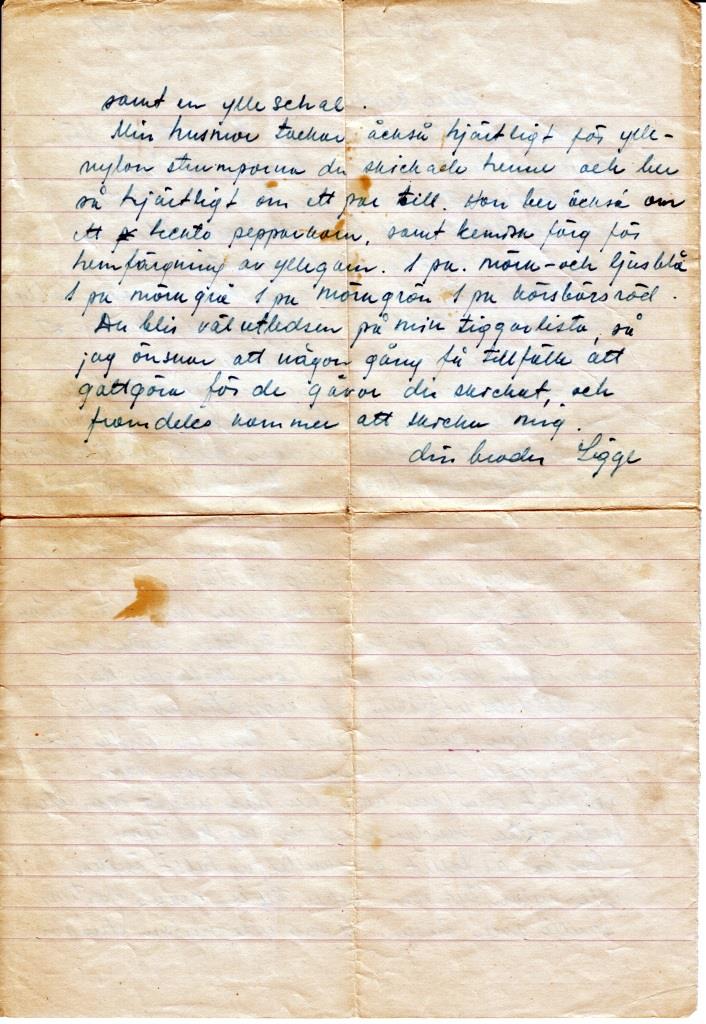 samt en ylle schal.
Min husmor tackar också hjärtligt för ylle-
nylon strumporna du skickade henne och ber
så hjärtligt om ett par till. Hon ber också om
ett hekto pepparkorn, samt kemisk färg för
hemfärgning av yllegarn. 1 pa. mörk- och ljusblå
1 pa mörkgrå 1 pa mörkgrön 1 pa körsbärsröd.
Du blir väl utledsen på min tiggarlista, så
jag önskar att någon gång få tillfälle att
gottgöra för de gåvor du skickat, och
framdeles kommer att skicka mig.
din broder Sigge